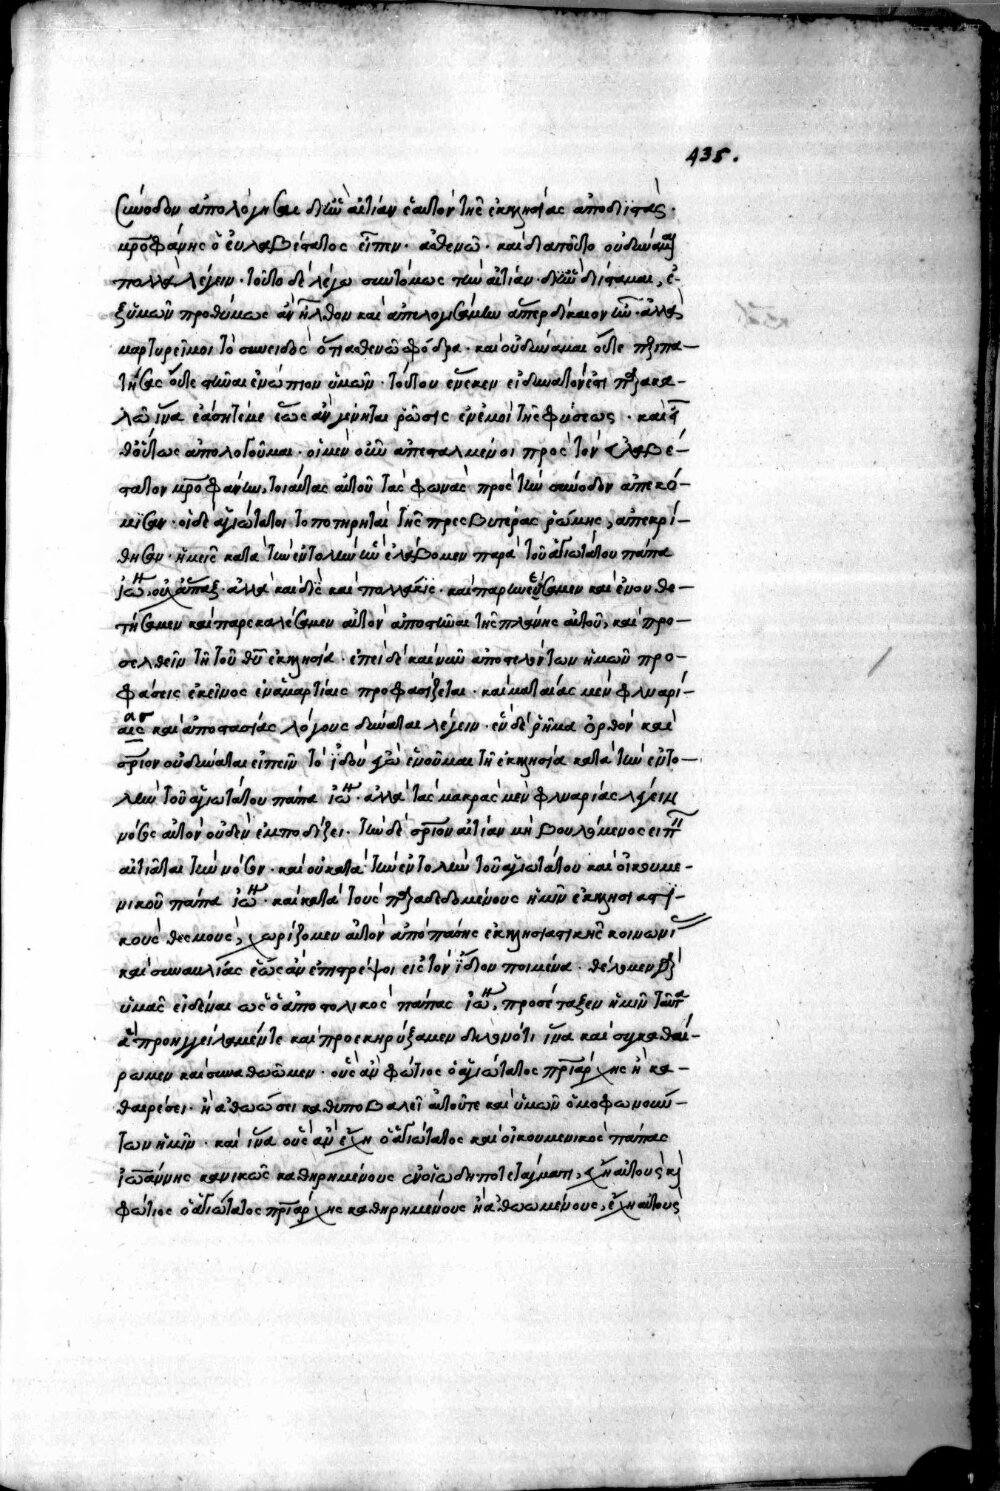 435.
σύνοδον ἀπολόγησαι δι' ἣν αἰτίαν ἑαυτὸν τῆς ἐκκλησίας ἀποδιϊστᾷς·
μητροφάνης ὁ εὐλαβέστατος εἶπεν· ἀσθενῶ· καὶ διὰ τοῦτο οὐ δύναμαι
πολλὰ λέγειν· τοῦτο δὲ λέγω συντόμως τὴν αἰτίαν· δι' ἣν διΐσταμαι, ἐ-
ξ ὑμῶν προθύμως ἂν ἦλθον καὶ ἀπελογησάμην ἅπερ δίκαιον ἦν· ἀλλὰ
μαρτυρεῖ μοι τὸ συνειδὸς ὅτι ἀσθενῶ σφόδρα· καὶ οὐ δύναμαι οὔτε περιπα-
τῆσαι οὔτε στῆναι ἐνώπιον ὑμῶν· τούτου ἕνεκεν εἰ δυνατόν ἐστι παρακα-
λῶ ἵνα ἐάσητέ με ἕως ἂν γένηται ῥῶσις ἐν ἐμοὶ τῆς φύσεως· καὶ
θ' οὕτως ἀπολογοῦμαι· οἱ μὲν οὖν ἀπεσταλμένοι πρὸς τὸν εὐλαβέ-
στατον μητροφάνην, τοιαύτας αὐτοῦ τὰς φωνὰς πρὸς τὴν σύνοδον ἀπεκό-
μισαν· οἱ δὲ ἁγιώτατοι τοποτηρηταὶ τῆς πρεσβυτέρας ῥώμης, ἀπεκρί-
θησαν· ἡμεῖς κατὰ τὴν ἐντολὴν ἣν ἐλάβομεν παρὰ τοῦ ἁγιωτάτου πάπα
ἰωάννου, οὐχ ἅπαξ· ἀλλὰ καὶ δὶς καὶ πολλάκις· καὶ παρῃνέσαμεν καὶ ἐνουθε-
τήσαμεν καὶ παρεκαλέσαμεν αὐτὸν ἀποστῆναι τῆς πλάνης αὐτοῦ, καὶ προ-
σελθεῖν τῇ τοῦ θεοῦ ἐκκλησίᾳ· ἐπεὶ δὲ καὶ νῦν ἀποστελόντων ἡμῶν προ-
φάσεις ἐκεῖνος ἐν ἁμαρτίαις προφασίζεται· καὶ ματαίας μὲν φλυαρί-
ας καὶ ἀποστασίας λόγους δύναται λέγειν· ἓν δὲ ῥῆμα ὀρθὸν καὶ
σωτήριον οὐ δύναται εἰπεῖν τὸ ἰδοὺ ἐγὼ ἑνοῦμαι τῇ ἐκκλησίᾳ κατὰ τὴν ἐντο-
λὴν τοῦ ἁγιωτάτου πάπα ἰωάννου· ἀλλὰ τὰς μακρὰς μὲν φλυαρίας λέγειν
νόσος αὐτὸν οὐδὲν ἐμποδίζει· τὴν δὲ σωτήριον αἰτίαν μὴ βουλόμενος εἰπεῖν
αἰτιᾶται τὴν νόσον· καὶ οὐ κατὰ τὴν ἐντολὴν τοῦ ἁγιωτάτου καὶ οἰκουμε-
νικοῦ πάπα ἰωάννου· καὶ κατὰ τοὺς παραδεδομένους ἡμῖν ἐκκλησιαστι-
κοὺς θεσμούς, χωρίζομεν αὐτὸν ἀπὸ πάσης ἐκκλησιαστικῆς κοινωνίας
καὶ συναυλίας ἕως ἂν ἐπιστρέψοι εἰς τὸν ἴδιον ποιμένα· θέλομεν
ὑμᾶς εἰδέναι ὡς ὁ ἀποστολικὸς πάπας ἰωάννης, προσέταξεν ἡμῖν ταῦτα
ἃ προηγγείλαμέν τε καὶ προεκηρύξαμεν δηλονότι ἵνα καὶ συγκαθαί-
ρωμεν καὶ συναθωῶμεν· οὓς ἂν φώτιος ὁ ἁγιώτατος πατριάρχης ἢ κα-
θαιρέσει· ἢ ἀθωώσει καθυποβαλεῖ αὐτοῦ τε καὶ ὑμῶν ὁμοφωνούν-
των ἡμῖν· καὶ ἵνα οὓς ἂν ἔχῃ ὁ ἁγιώτατος καὶ οἰκουμενικὸς πάπας
ἰωάννης κανονικῶς καθῃρημένους ἐν οἱῳδήποτε τάγματι, ἔχῃ αὐτοὺς καὶ
φώτιος ὁ ἁγιώτατος πατριάρχης καθῃρημένους ἢ ἀθωωμένους, ἔχῃ αὐτοὺς